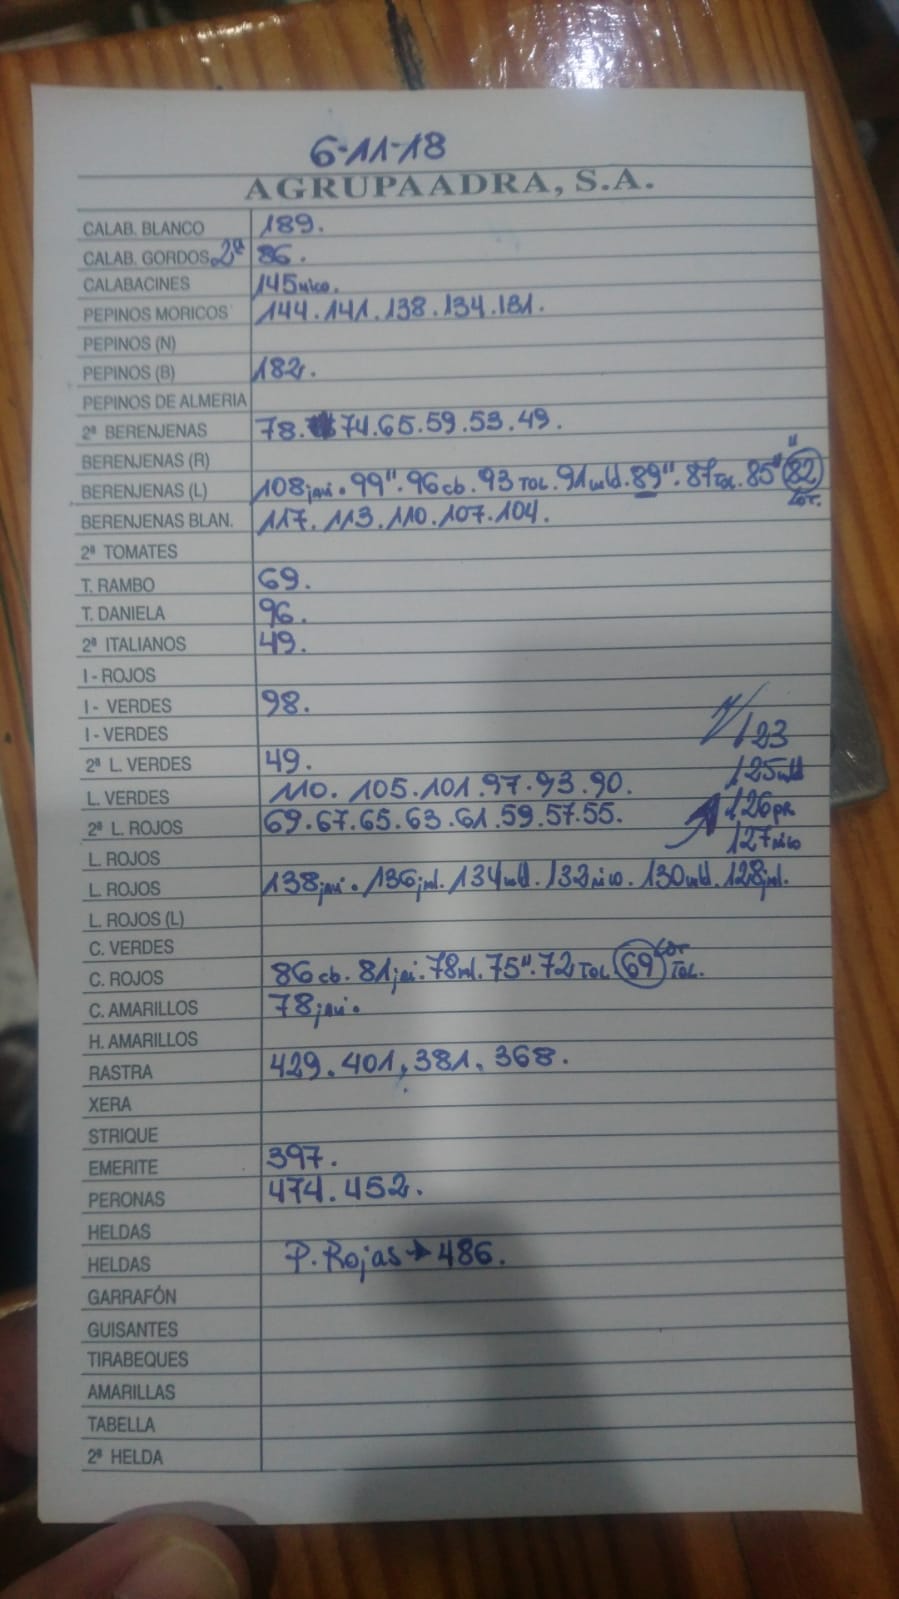 6-11-18
AGRUPAADRA, S.A.
CALAB. BLANCO 189.
CALAB. GORDOS 2ª 86.
CALABACINES 145 nico.
PEPINOS MORICOS 144. 141. 138. 134. 131.
PEPINOS (N)
PEPINOS (B) 182.
PEPINOS DE ALMERIA
2ª BERENJENAS 78. 74. 65. 59. 53. 49.
BERENJENAS (R)
BERENJENAS (L) 108 javi. 99". 96 cb. 93 TOL. 91 mld. 89". 87 TOL. 85" 82 "
BERENJENAS BLAN. 117. 113. 110. 107. 104.
2ª TOMATES
T. RAMBO 69.
T. DANIELA 96.
2ª ITALIANOS 49.
I - ROJOS
I - VERDES 98.
I - VERDES 123
2ª L. VERDES 49. 125 mld
L. VERDES 110. 105. 101. 97. 93. 90. 126 pr
2ª L. ROJOS 69. 67. 65. 63. 61. 59. 57. 55. 127 nico
L. ROJOS
L. ROJOS 138 javi. 136 jml. 134 mld. 132 nico. 130 mld. 128 jml.
L. ROJOS (L)
C. VERDES
C. ROJOS 86 cb. 81 javi. 78 ml. 75". 72 TOL. 69 TOL.
C. AMARILLOS 78 javi.
H. AMARILLOS
RASTRA 429. 401. 381. 368.
XERA
STRIQUE
EMERITE 397.
PERONAS 474. 452.
HELDAS
HELDAS P. Rojas → 486.
GARRAFÓN
GUISANTES
TIRABEQUES
AMARILLAS
TABELLA
2ª HELDA